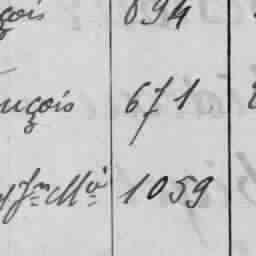 çois 694
nçois 671
Jn Mia 1059